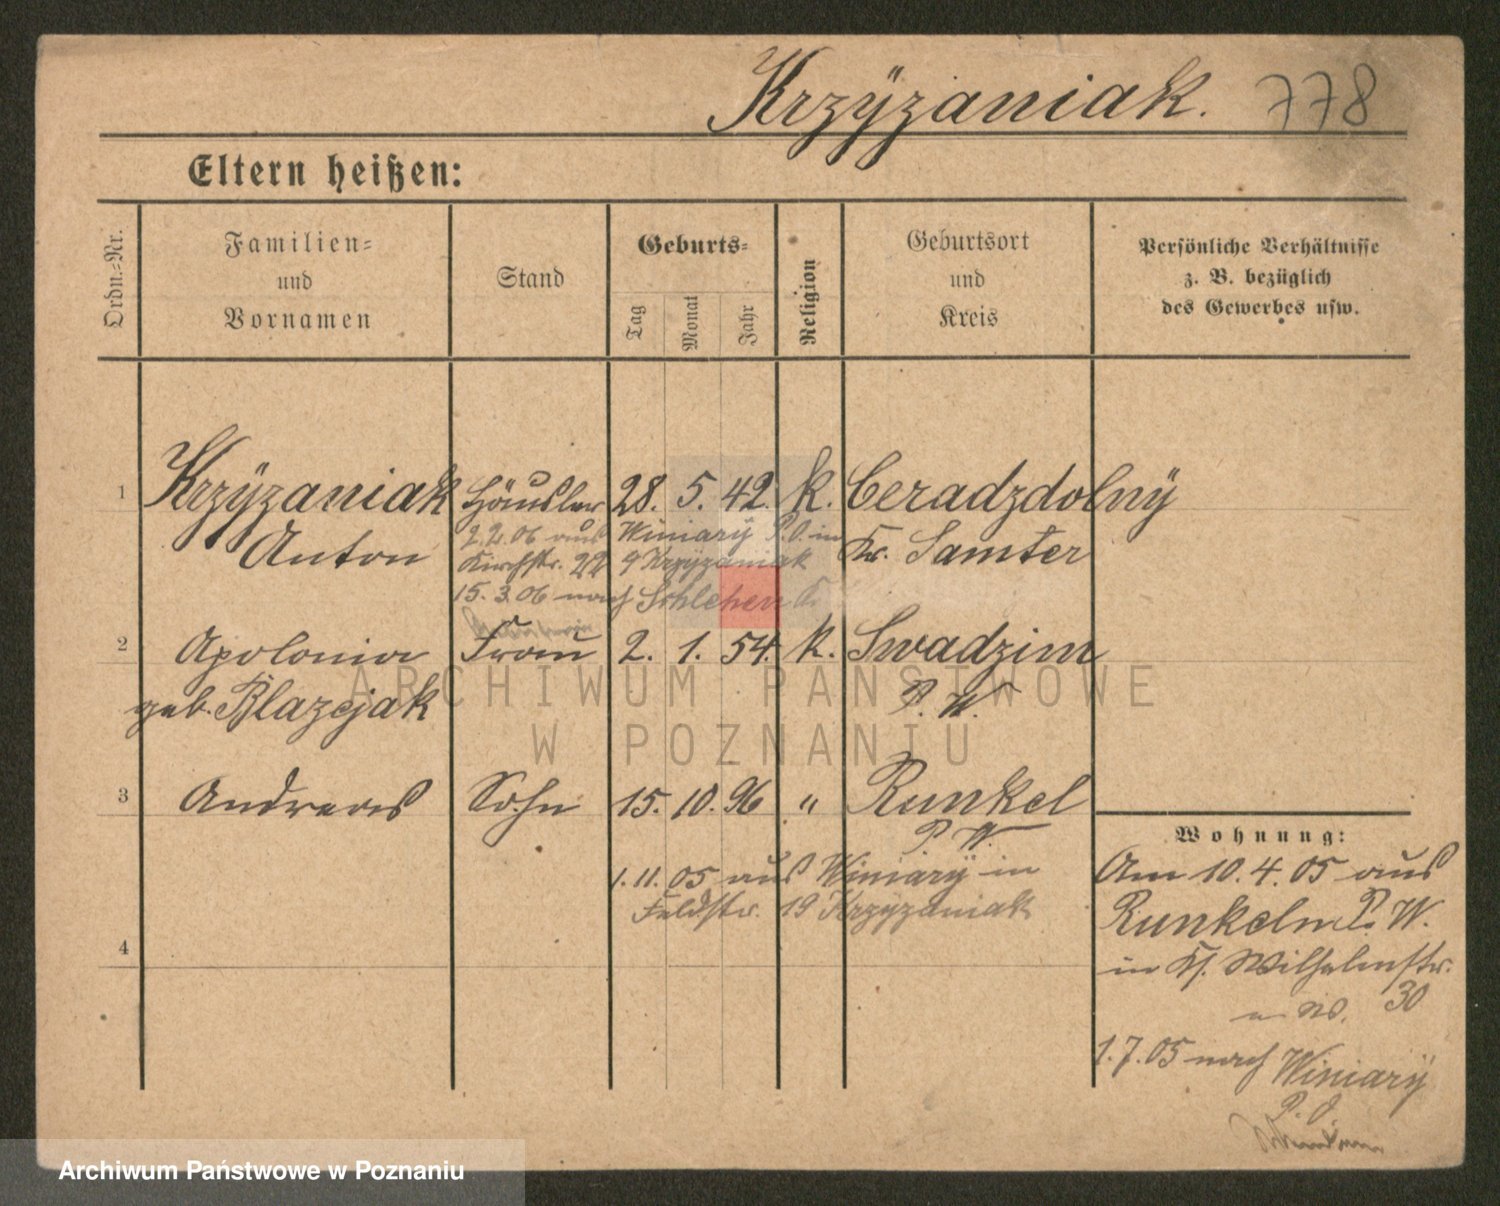 Krzÿzaniak. 778
Eltern heißen:
Ordn.-Nr.
Familien-
und
Vornamen
Stand
Geburts-
Tag
Monat
Jahr
Religion
Geburtsort
und
Kreis
Persönliche Verhältnisse
z. B. bezüglich
des Gewerbes usw.
1 Krzÿzaniak Häusler 28. 5. 42. k. Ceradzdolnÿ
Anton Kr. Samter
2.2.06 aus Winiarÿ P.O. in
Kirchstr. 22 Krzÿzaniak
15.3.06 nach Schlehen
2 Apolonia Frau 2. 1. 54. k. Swadzim
geb. Blazejak P. W.
3 Andreas Sohn 15. 10. 96 " Runkel
P. W.
1.11.05 aus Winiarÿ in
Feldstr. 19 Krzÿzaniak
4
Wohnung:
Am 10.4.05 aus
Runkeln P. W.
in Kl. Wilhelmstr.
30
1.7.05 nach Winiarÿ
P. O.
ARCHIWUM PAŃSTWOWE
W POZNANIU
Archiwum Państwowe w Poznaniu